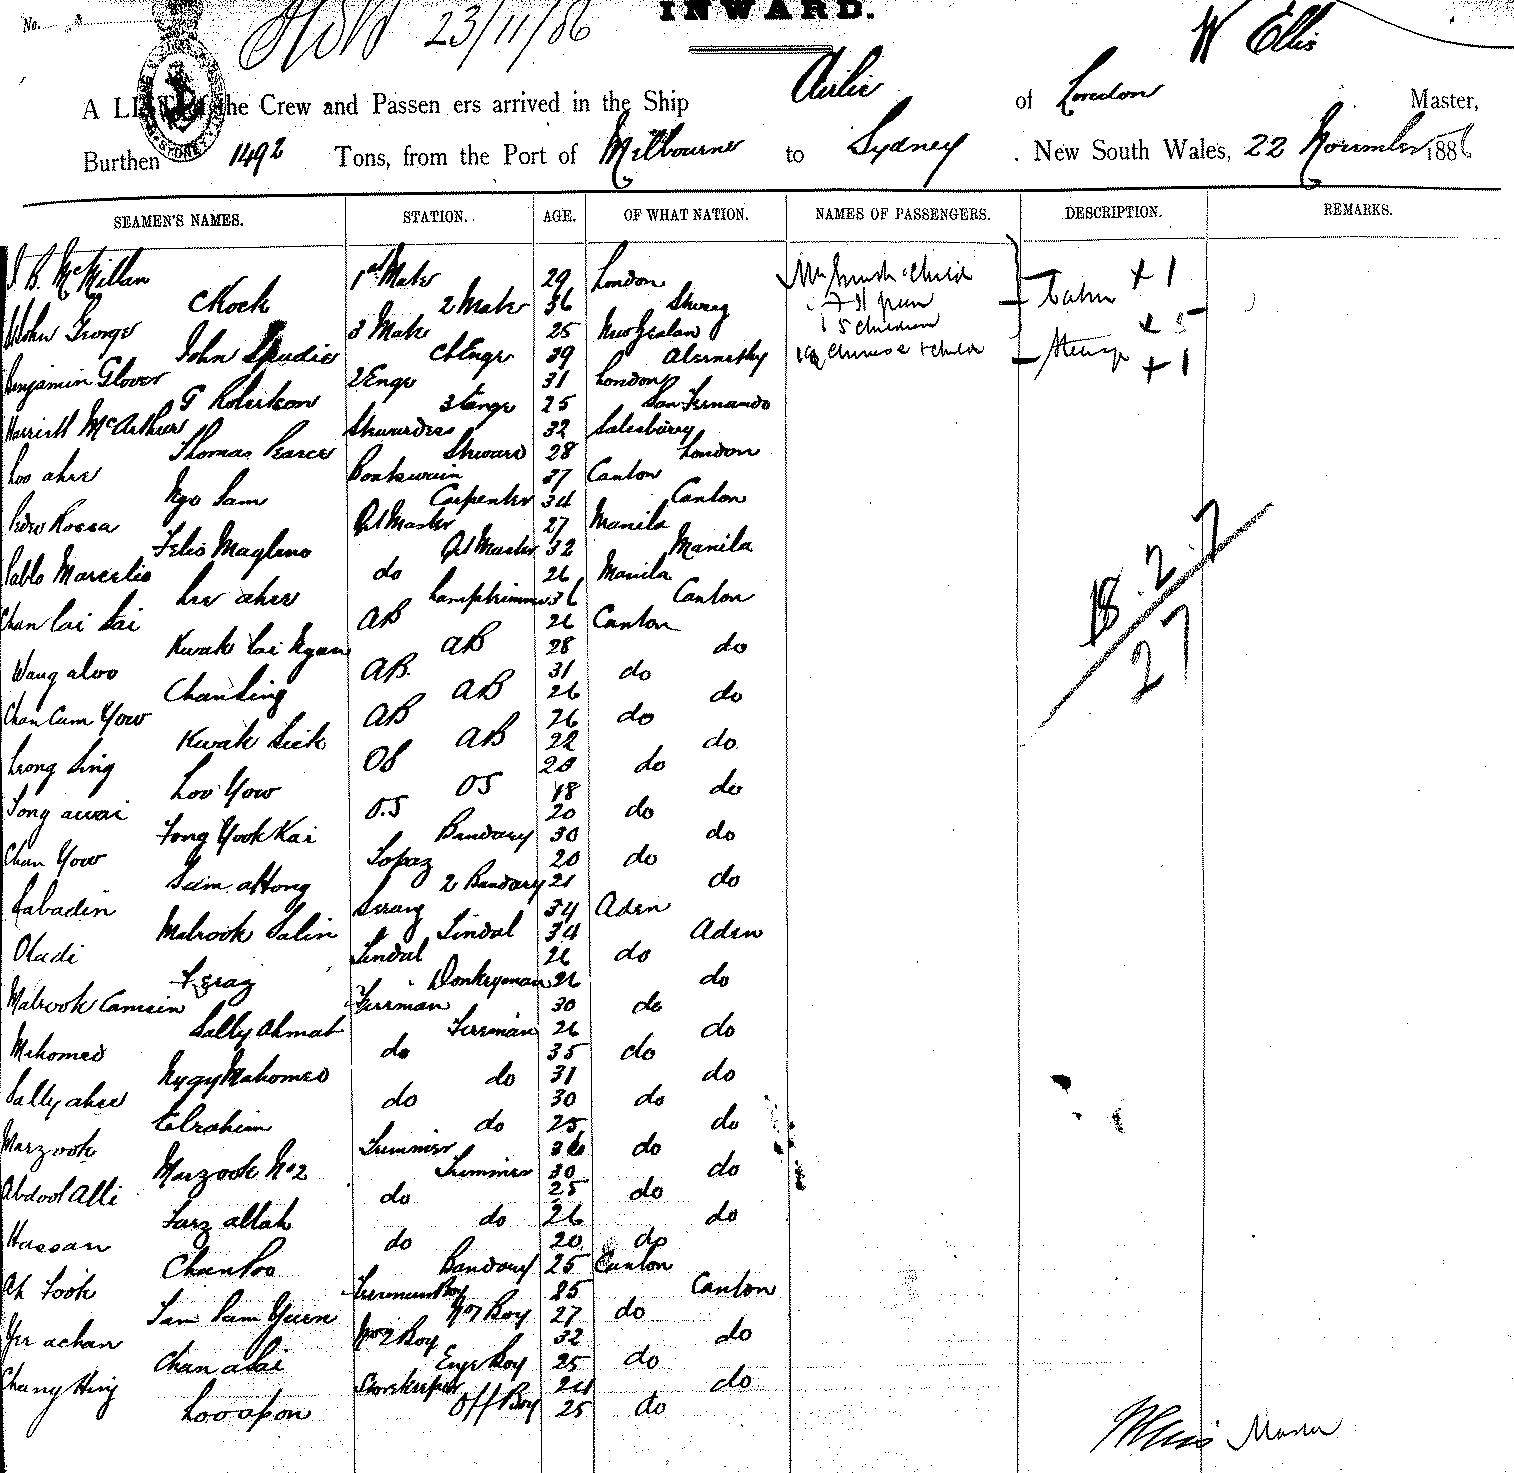 No.
23/11/86
INWARD.
W Ellis
A LIST of the Crew and Passen ers arrived in the Ship Airlie of London Master,
Burthen 1492 Tons, from the Port of Melbourne to Sydney . New South Wales, 22 November 1886
SYDNEY
SEAMEN'S NAMES. STATION. AGE. OF WHAT NATION. NAMES OF PASSENGERS. DESCRIPTION. REMARKS.
B. McMillan 1st Mate 29 London Child + 1
C Kock 2 Mate 36 Cabin
John George 3 Mate 25 New Zealan 5 children + 5
John ChEngr 39 Abernethy Chinese + child
Benjamin Glover 2 Engr 31 London + 1
G Robertson 3 Engr 25 San Fernando
Harriett McArthur 32 Salesbury
Thomas Pearce Steward 28 London
Loo ahee Boatswain 37 Canton
Ngo Sam Carpenter 34 Canton
Pedro Rossa Qt Master 27 Manila
Felis Maglano Qt Master 32 Manila
Pablo Marcelio do 26 Manila
Lee ahee Lamptrimmer 36 Canton
Chan Cai Sai AB 26 Canton
Kwak Cai Ngan AB 28 do
Wang aloo AB. 31 do
Chan Sing AB 26 do
Chan Cum Yow AB 26 do
Kwak Seek AB 22 do
Leong Sing OS 20 do
Loo Yow OS 18 do
Tong awai O.S 20 do
Tong Yook Kai Bandary 30 do
Chan Yow Topaz 20 do
Sam aHong 2 Bandary 21 do
Sabadin Serang 34 Aden
Mabrook Salin Tindal 34 Aden
Oladi Tindal 26 do
Feraz Donkeyman 26 do
Mabrook Camsin Fireman 30 do
Sally Ahmat Fireman 26 do
Mahomed do 35 do
Mahomed do 31 do
Sally ahee do 30 do
Ebrahim do 25 do
Marzook Trimmer 36 do
Marzook No2 Trimmer 30 do
Abdool Alli do 25 do
Farz allah do 26 do
Hassan do 20 do
Chan Poo Bandary 25 Canton
Ah Fook 25 Canton
Sam Pam Yuen No1 Boy 27 do
Yee achan No2 Boy 32 do
Chan a Sai Engr Boy 25 do
Chung Hing Storekeeper 24 do
Loo apon Off Boy 25 do
18.2.7
27
W Ellis Master